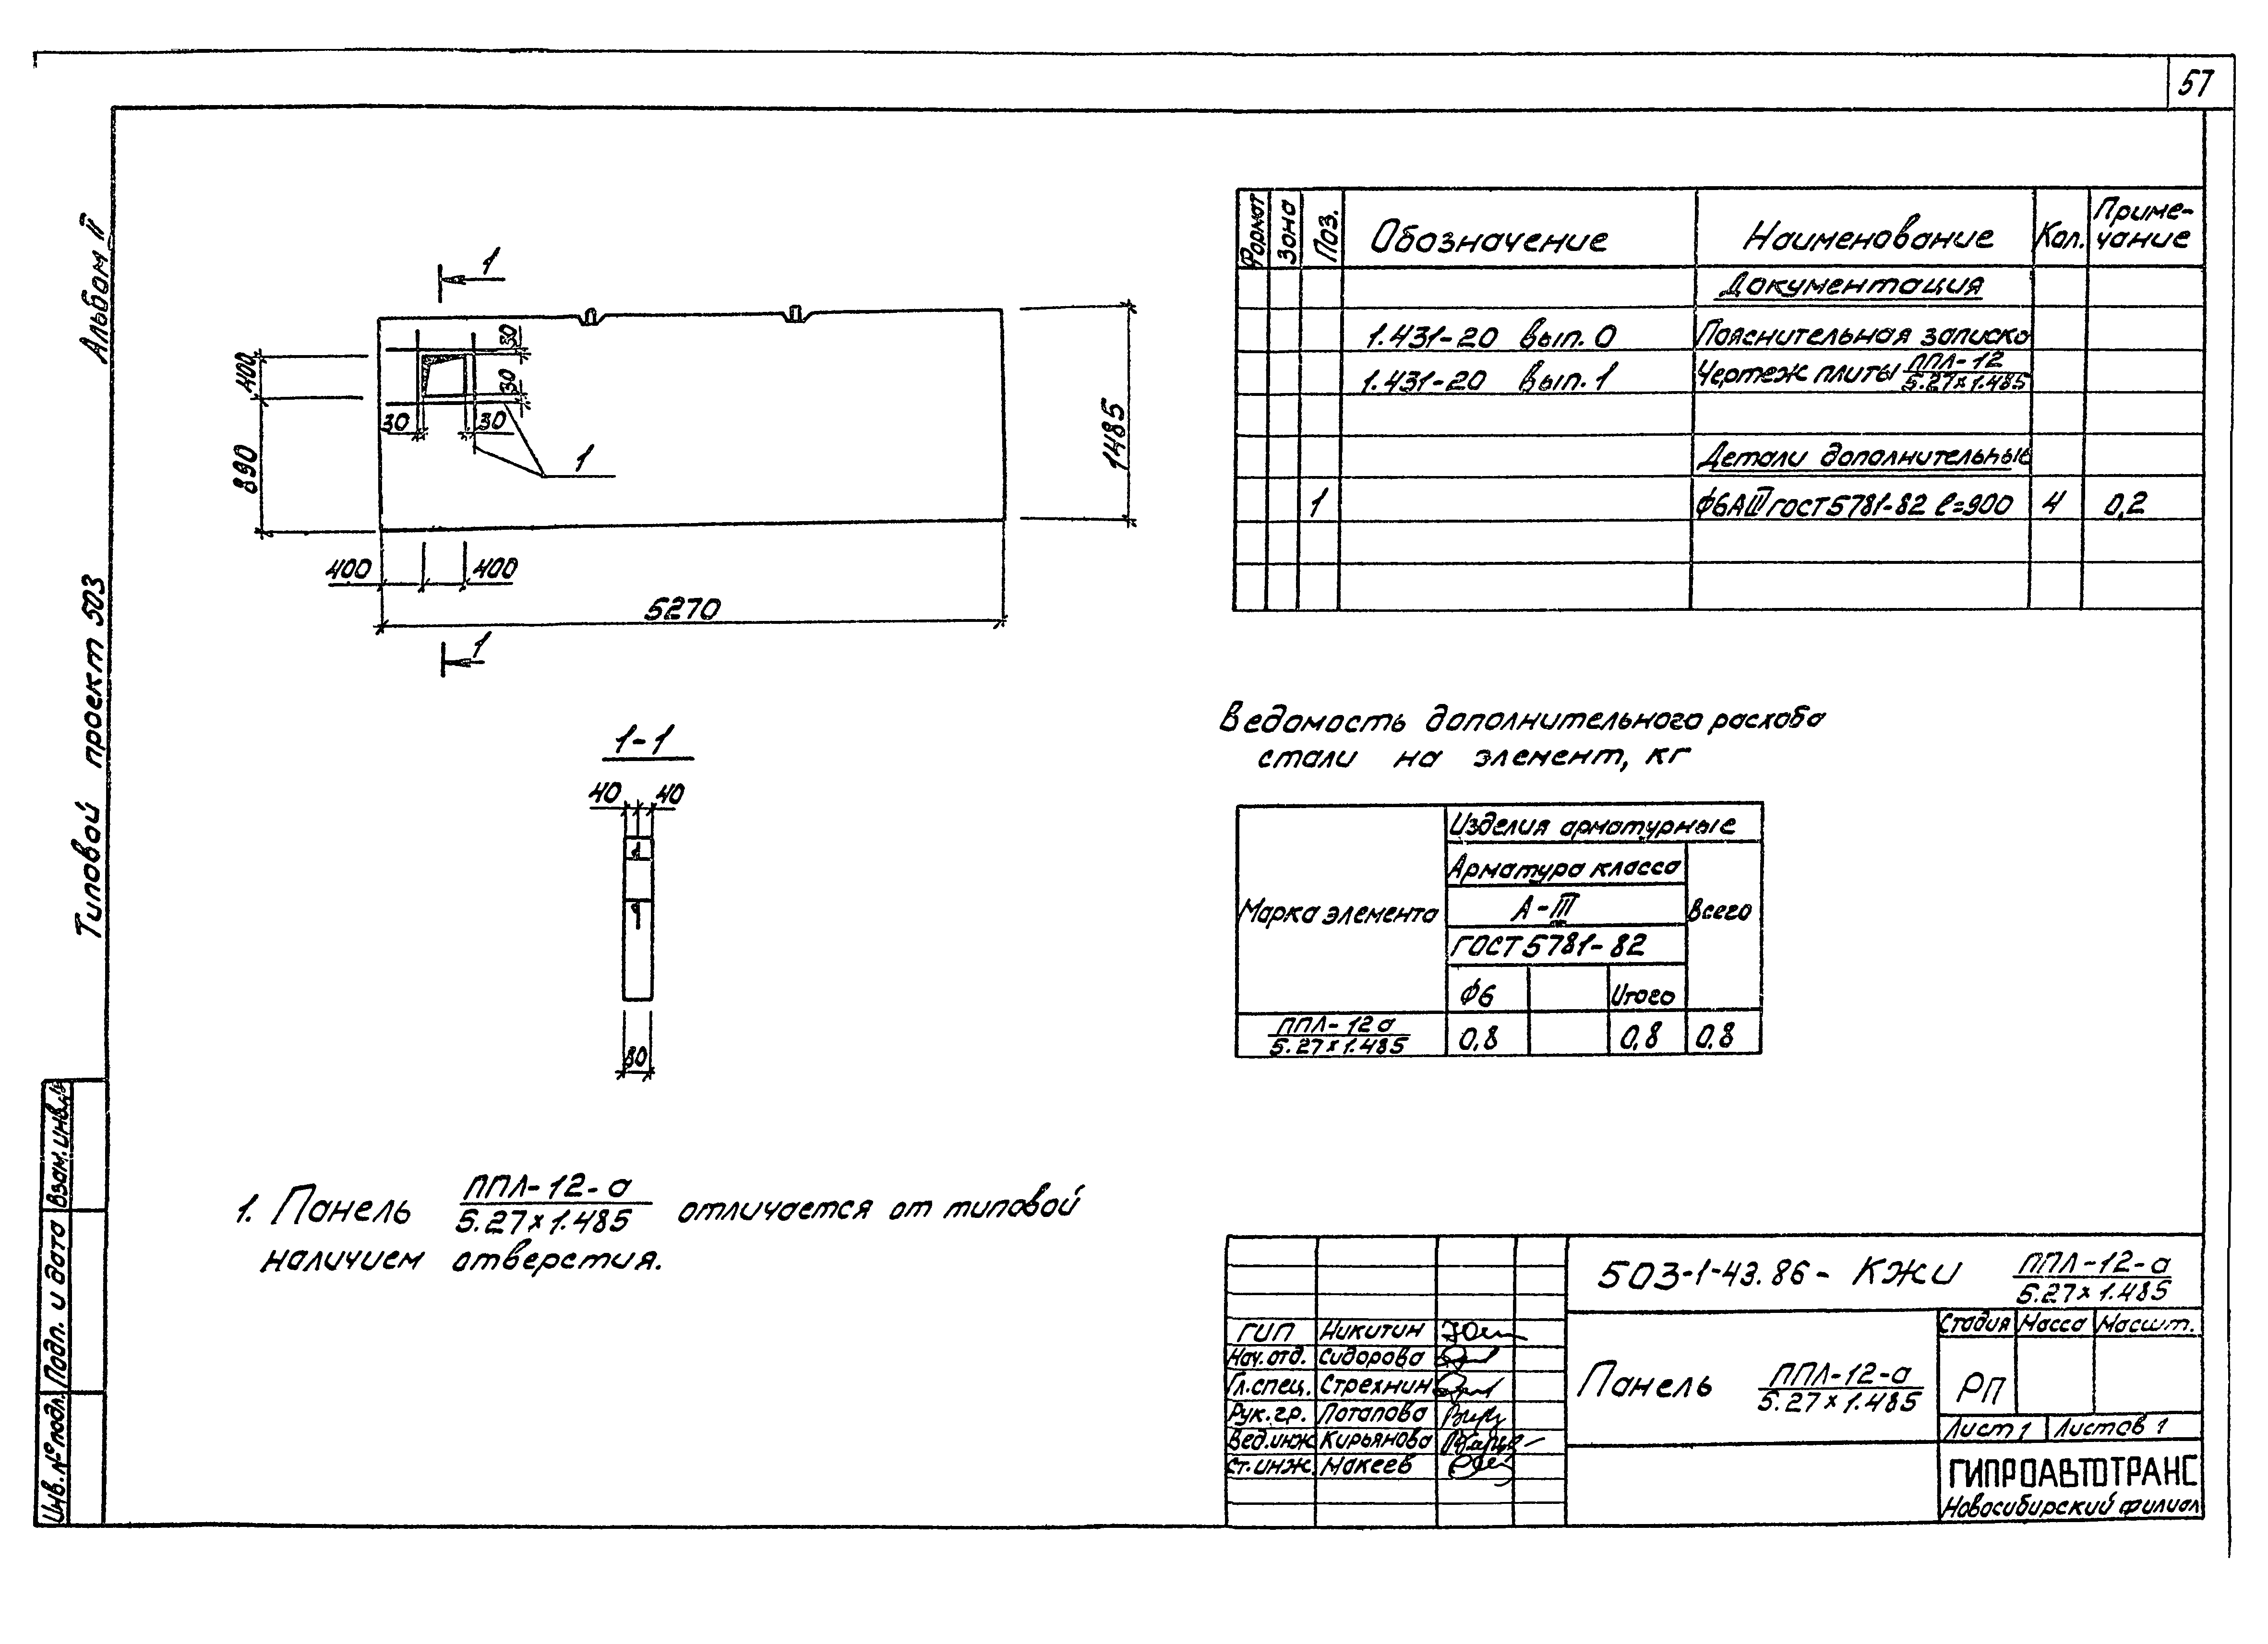 57
Альбом II
Типовой проект 503
1
400
890
30
30
30
30
1
1485
400
400
5270
1
1-1
40
40
80
1. Панель ППЛ-12-а / 5.27×1.485 отличается от типовой
наличием отверстия.
Формат
Зона
Поз.
Обозначение
Наименование
Кол.
Приме-
чание
Документация
1.431-20 вып. 0 Пояснительная записка
1.431-20 вып. 1 Чертеж плиты ППЛ-12 / 5.27×1.485
Детали дополнительные
1 ϕ6АIII ГОСТ 5781-82 ℓ=900 4 0,2
Ведомость дополнительного расхода
стали на элемент, кг
Марка элемента
Изделия арматурные
Арматура класса
А-III
ГОСТ 5781-82
Всего
ϕ6
Итого
ППЛ-12а / 5.27×1.485 0,8 0,8 0,8
503-1-43.86- КЖИ ППЛ-12-а / 5.27×1.485
ГИП Никитин
Нач.отд. Сидорова
Гл.спец. Стрехнин
Рук.гр. Потапова
Вед.инж. Кирьянова
Ст.инж. Макеев
Панель ППЛ-12-а / 5.27×1.485
Стадия Масса Масшт.
РП
Лист 1 Листов 1
ГИПРОАВТОТРАНС
Новосибирский филиал
Взам. инв.№
Подп. и дата
Инв.№подл.